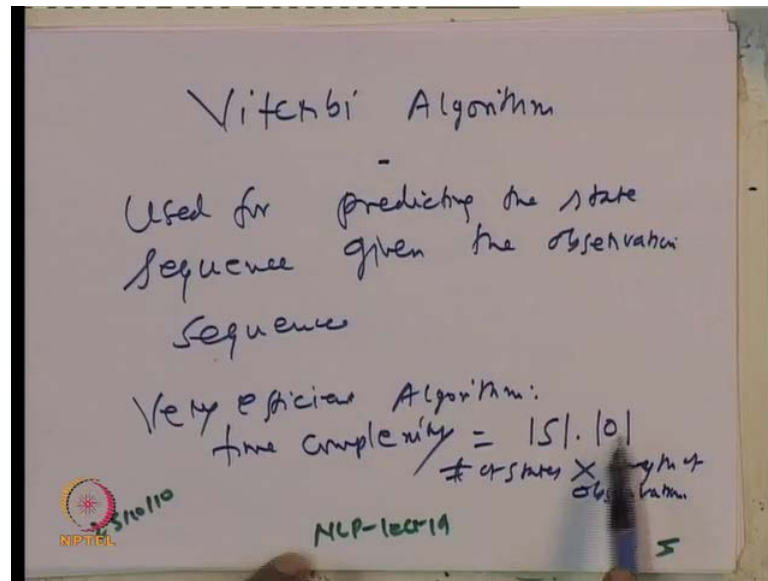 Viterbi Algorithm
Used for predicting the state
sequence given the observation
sequence
Very efficient Algorithm:
time complexity = |S|.|O|
# of states X length of
observation
25/10/10
NPTEL
NLP-lect19
5